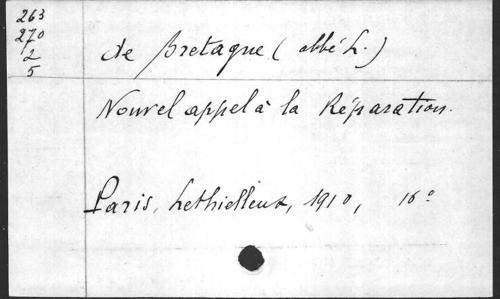 263
270
2
5
de Bretagne (abbé L.)
Nouvel appel à la Réparation.
Paris, Lethielleux, 1910, 16°